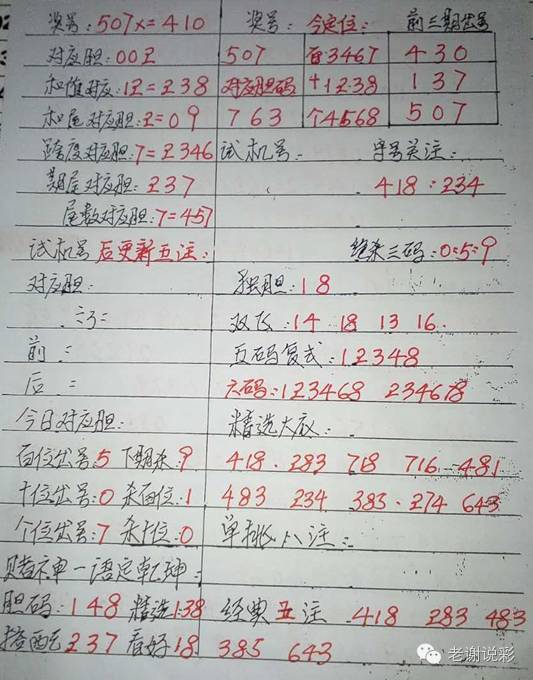 奖号:507x=410 奖号: 今定位: 前三期出号
对应胆:002 507 百3467 430
和值对应:12=238 对应胆码 十1238 137
和尾对应胆:2=09 763 个4568 507
跨度对应胆:7=2346 试机号: 守号关注:
期尾对应胆:237 418:234
尾数对应胆:7=457
试机号后更新五注: 绝杀三码:0:5:9
对应胆: 独胆:18
双飞:14 18 13 16
前: 五码复式:12348
后: 六码:123468 234678
今日对应胆: 精选大底:
百位出号:5 下期杀:9 418.283 718 716 481
十位出号:0 杀百位:1 483 234 383.274 643
个位出号:7 杀十位:0 单挑八注:
赌神一语定乾坤:
胆码:148 精选138 经典五注 418 283 483
搭配237 看好18 385 643
老谢说彩